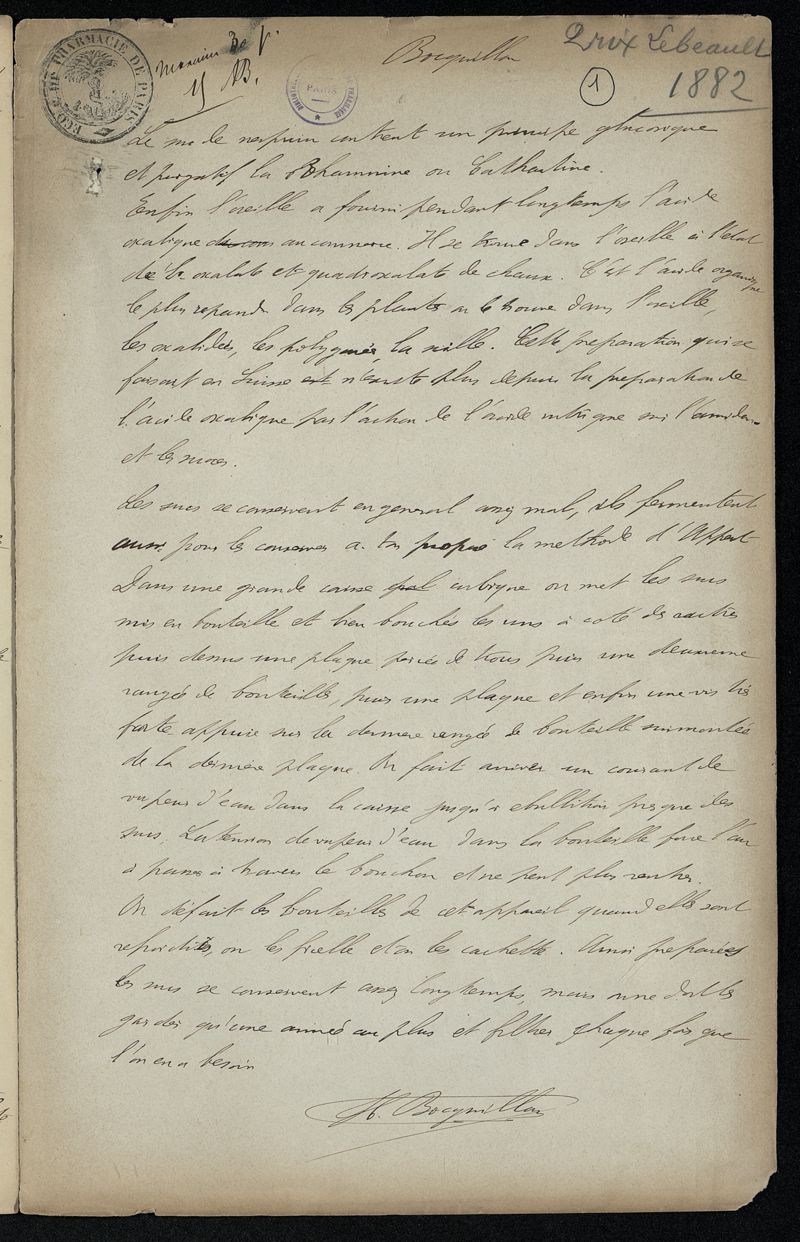 ECOLE DE PHARMACIE DE PARIS
Bocquillon
Prix Lebeault
1
1882
PARIS
Le suc de nerprun contient un principe glucosique
et purgatif la Rhamnine ou Cathartine.
Enfin l'oseille a fourni pendant longtemps l'acide
oxalique au commerce. Il se trouve dans l'oseille à l'état
de oxalate et quadroxalate de chaux. C'est l'acide organique
le plus repandu dans les plantes on le trouve dans l'oseille,
les oxalidées, les polygonées, la scille. Cette preparation qui se
faisait en Suisse n'existe plus depuis la preparation de
l'acide oxalique par l'action de l'acide nitrique sur l'amidon
et les sucres.
Les sucs se conservent en general assez mal, ils fermentent
aussi pour les conserver a-t-on proposé la methode d'Appert
Dans une grande caisse cubique on met les sucs
mis en bouteille et bien bouchés les uns à coté des autres
puis dessus une plaque percée de trous puis une deuxieme
rangée de bouteilles, puis une plaque et enfin une vis très
forte appuie sur la derniere rangée de bouteille surmontée
de la dernière plaque. On fait arriver un courant de
vapeur d'eau dans la caisse jusqu'à ebullition presque des
sucs. La tension de vapeur d'eau dans la bouteille force l'air
à passer à travers le bouchon et ne peut plus rentrer.
On défait les bouteilles de cet appareil quand elles sont
refroidies, on les ficelle et on les cachette. Ainsi preparées
les sucs se conservent assez longtemps, mais on ne doit les
garder qu'une année au plus et filtrer chaque fois que
l'on en a besoin
H. Bocquillon